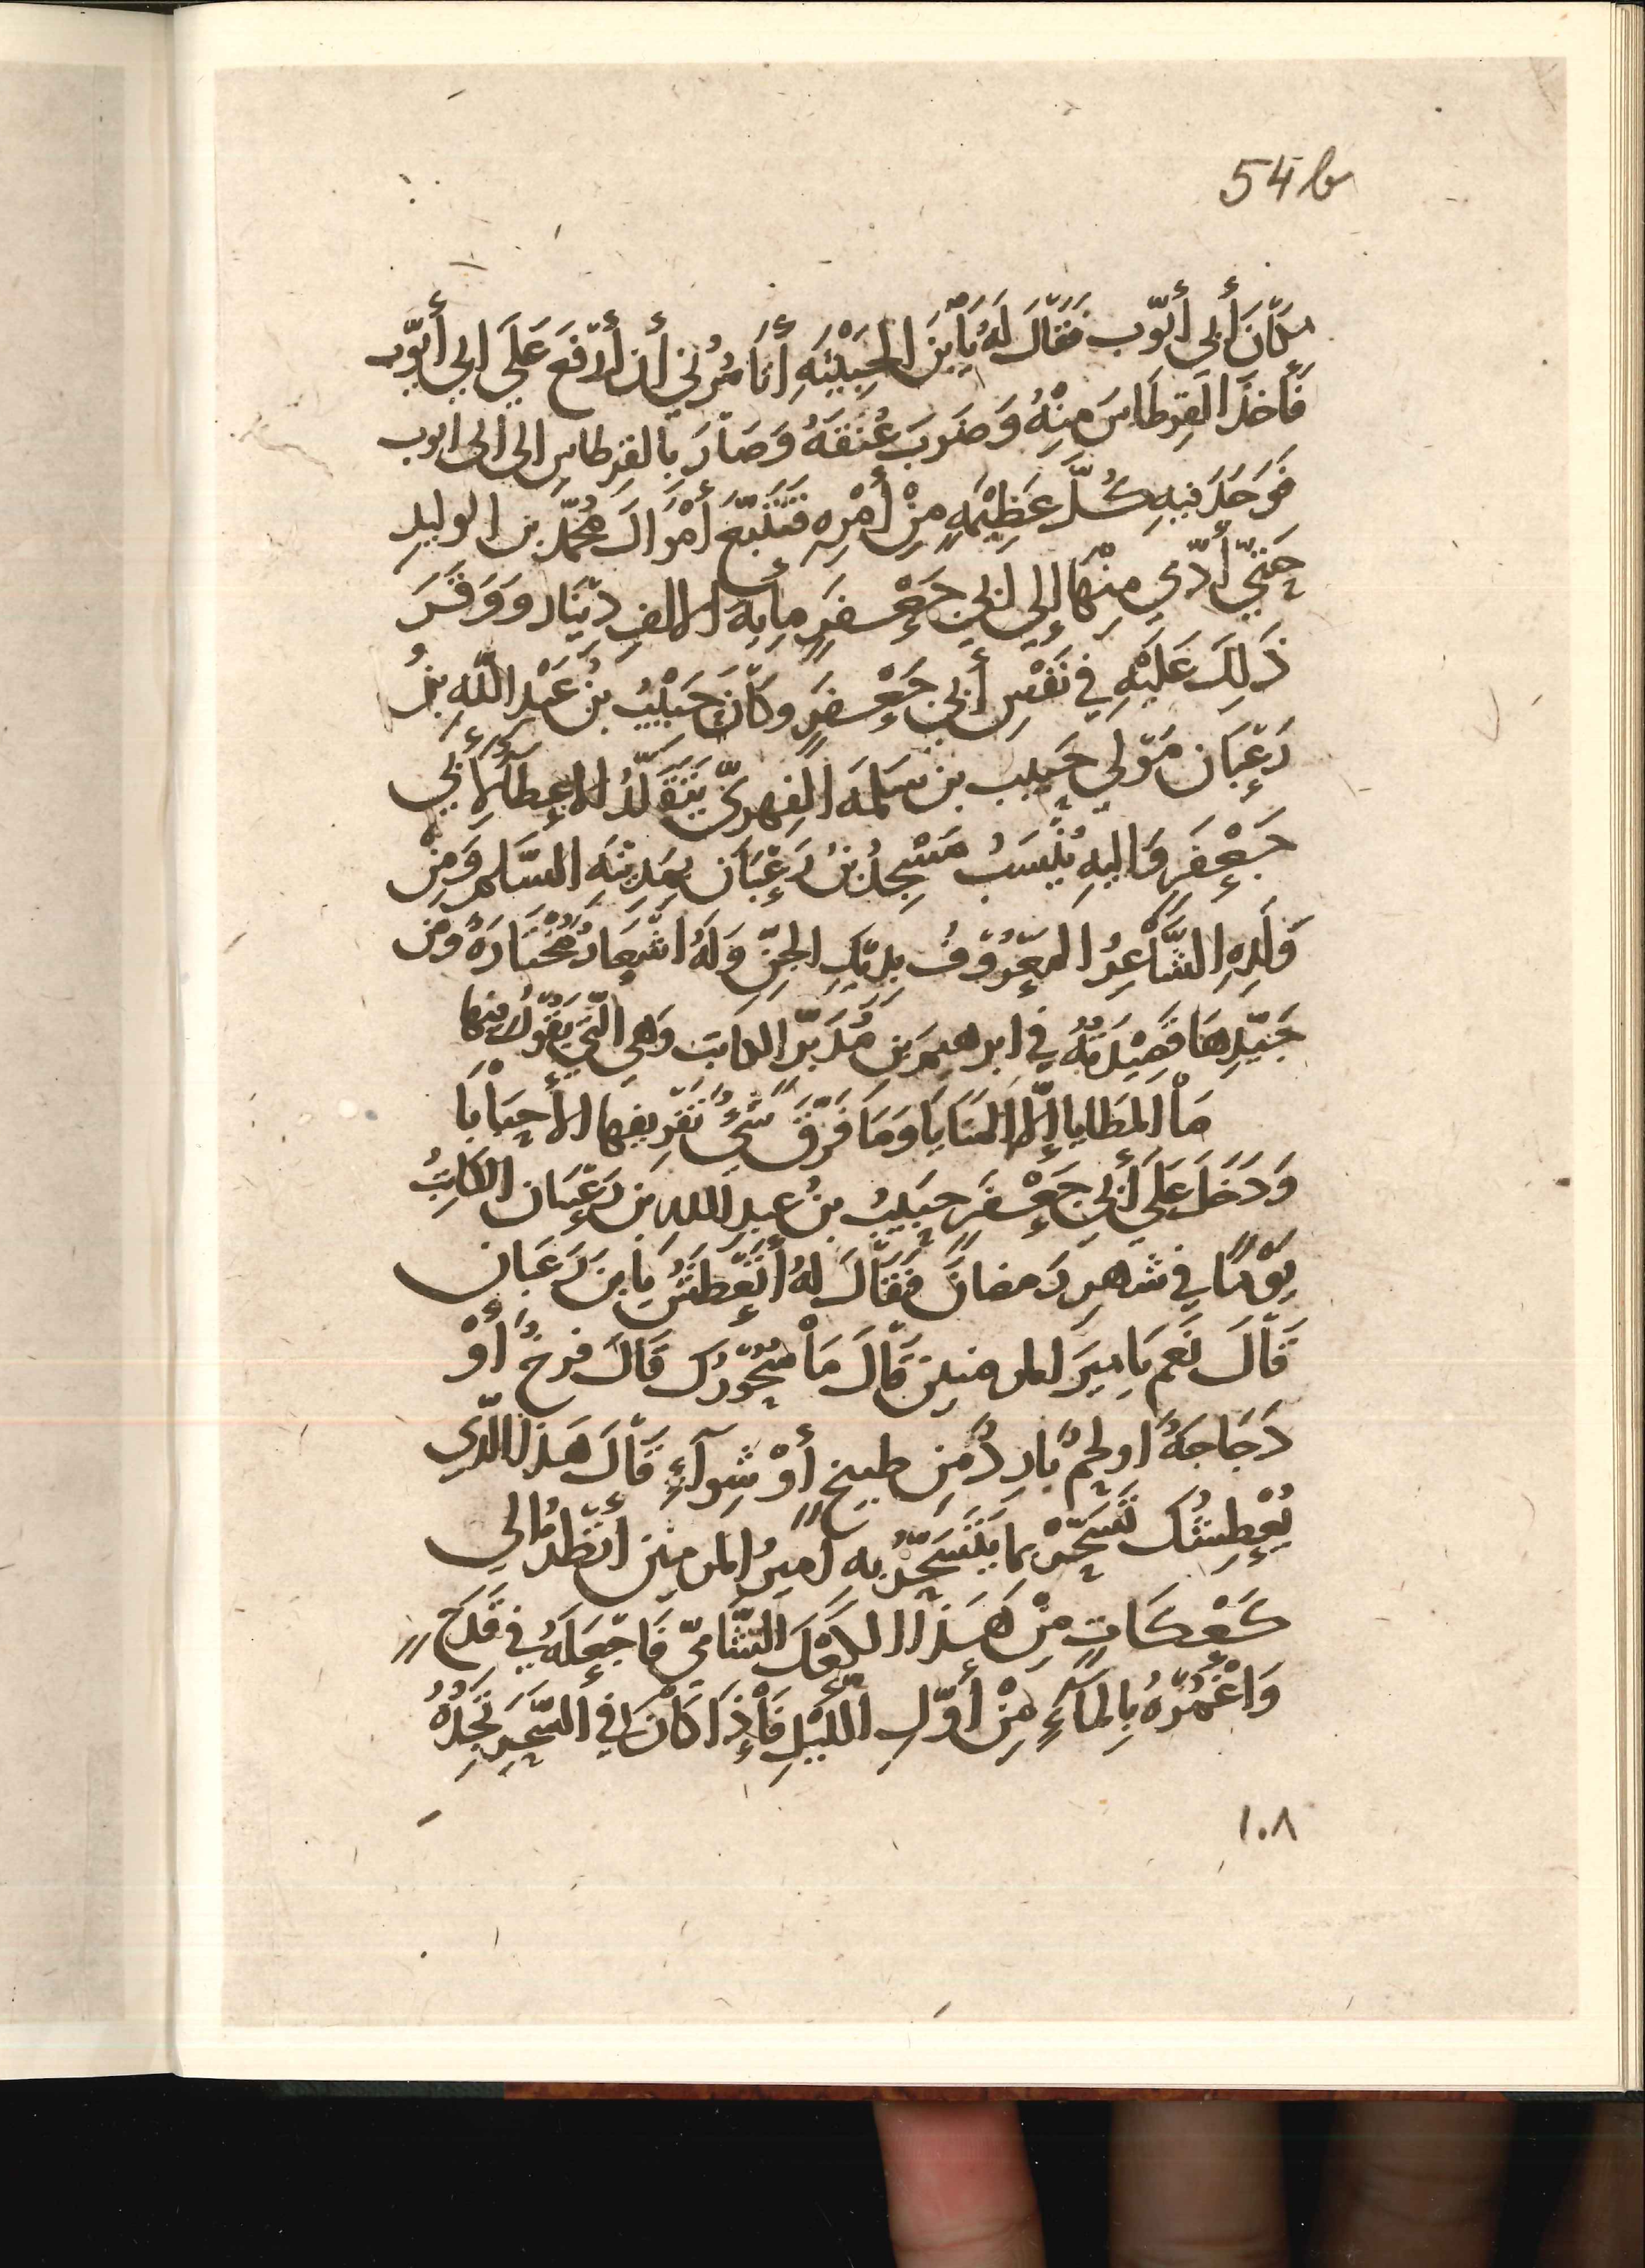 54b
مكان أبي أيّوب فقال لَهُ يَا بْنَ الخبيثة أتأمُرُني أن أدفعَ علَى ابي أيّوب
فأخذ القِرطاسَ مِنْهُ وَضَرَبَ عُنقَهُ وَصَارَ بالقِرطاسِ الى ابى ايوب
فَوَجَدَ فيهِ كُلَّ عَظِيْمَةٍ مِنْ أَمْرِهِ فتَتَبَّعَ أَمْوَالَ مُحَمَّد بن الوليدِ
حَتّي أدّي مِنْهَا إلي ابي جَعْفَرٍ مِايةَ الفِ دِيْنار وَوَقَرَ
ذَلِكَ عَلَيْهِ في نَفْسِ أبي جَعْفَرٍ وَكَانَ حَبيْبُ بنُ عَبْدِ اللَّه بنُ
رَغْبَان مَوْلي حَبيب بن سَلمَة الفِهريّ يَتَقَلَّدُ الاعطاَءَ لأبي
جَعْفَرٍ وَاليهِ يُنْسَبُ مَسْجِدُ بنُ رَغْبَان بمَدينَة السَّلمِ وَمِنْ
وَلَدِهِ الشَّاعِرُ المَعْرُوْفُ بديْكِ الجِنِّ وَلَهُ اشْعَارٌ مُخْتَارَةٌ وَمن
جَيِّدِهَا قَصِيْدَتُهُ في ابرهيمَ بن مُدَبّر الكاتب وَهي الّتي يَقُوْلُ فيها
مَا المَطَايا إلّا المَنَايَا وَمَا فَرَّقَ شَيْءٌ تَفْرِيقِها الأَحْبَابَا
وَدَخَلَ عَلَي أبي جَعْفَرٍ حَبيبُ بنُ عبدِ اللهِ بن رَغْبَان الكاتِبُ
يَوْمًا في شهرِ رَمضانَ فَقَالَ لهُ أتَعْطَشُ يَا بن رَغبان
قَالَ نَعم يَا ميرَ المومنينَ قَالَ مَا سُحُوْرُكَ قالَ فرخٌ أَوْ
دَجَاجَةٌ او لحمٌ بَارِدٌ مِن طبيخٍ أَوْ شِوآءٍ قَالَ هَذَا الَّذي
يُعْطِشُكَ تَسَحَّرْ بما يَتَسَحَّرُ به امِيرُ المومنين انظُرْ الي
كَعْكَاتٍ مِنْ هَذَا الكَعْكَ الشَّامِيّ فَاجْعَلهُ في قَدَحٍ
وَاغْمُرْهُ بِالمَآءِ مِنْ أوّلِ اللَّيْلِ فَإذَا كَانَ في السَّحَرِ تَجِدُهُ
١٠٨